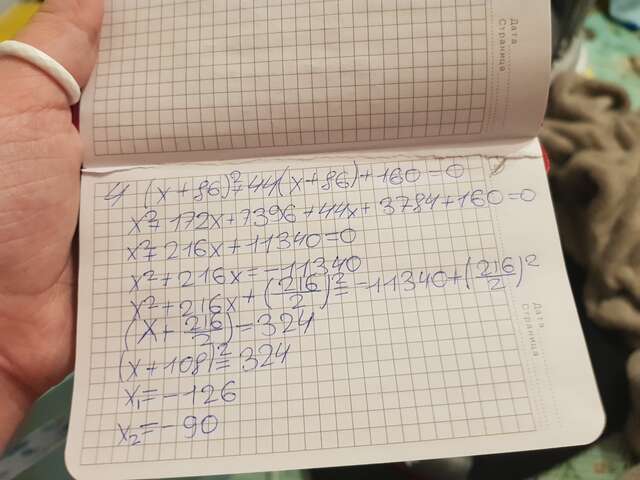 Дата
Страница
4 (x+86)²+44(x+86)+160=0
x²+172x+7396+44x+3784+160=0
x²+216x+11340=0
x²+216x=-11340
x²+216x+(216/2)²=-11340+(216/2)²
(x+216/2)=324
(x+108)²=324
x₁=-126
x₂=-90
Дата
Страница